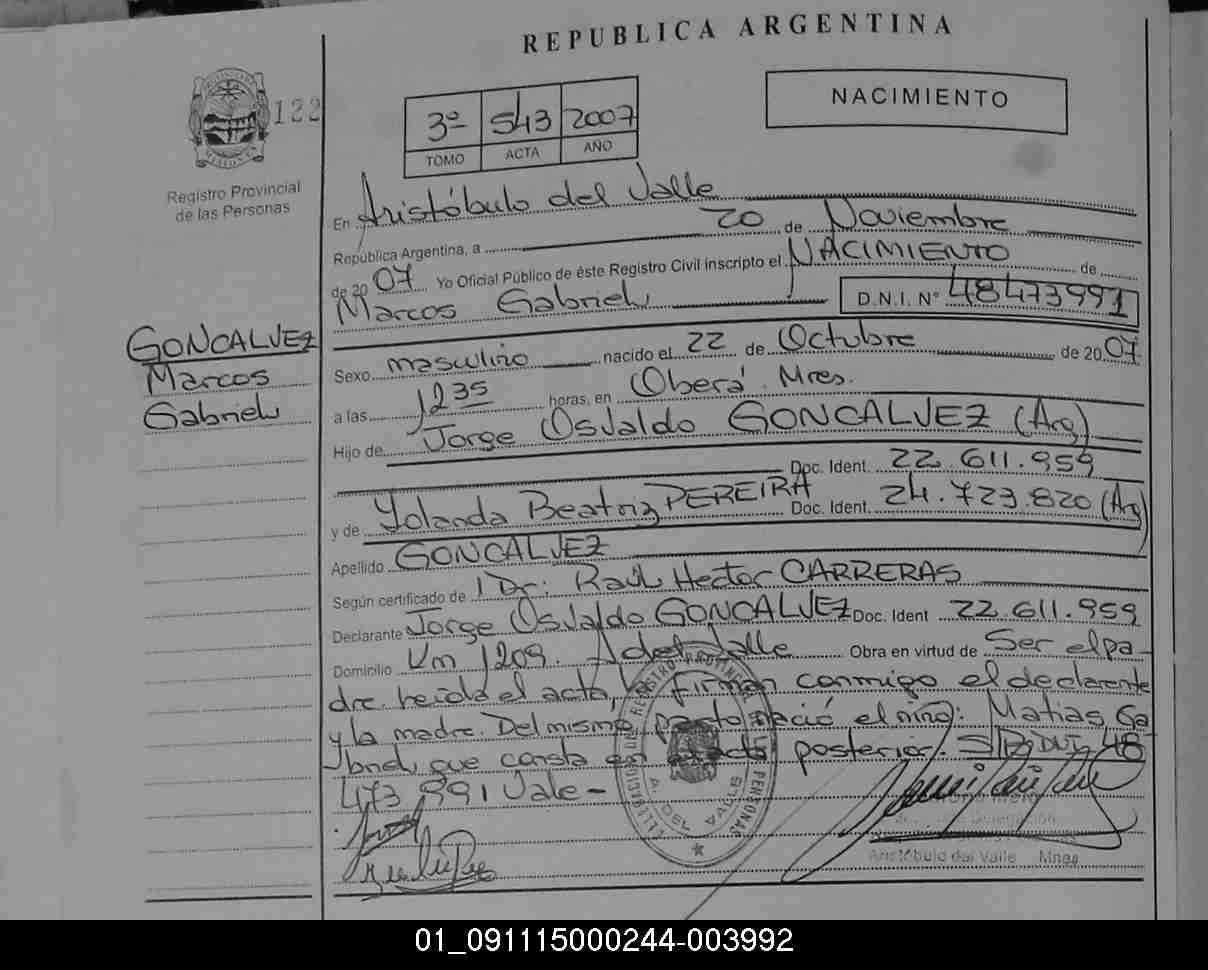 REPUBLICA ARGENTINA
122
3º 543 2007
TOMO ACTA AÑO
NACIMIENTO
MISIONES
Registro Provincial
de las Personas
En Aristóbulo del Valle
República Argentina, a 20 de Noviembre
de 2007 Yo Oficial Público de éste Registro Civil inscripto el NACIMIENTO de
Marcos Gabriel D.N.I. Nº 48473991
GONCALVEZ
Marcos
Gabriel
Sexo masculino nacido el 22 de Octubre de 2007
a las 1235 horas, en Oberá Mnes.
Hijo de Jorge Osvaldo GONCALVEZ (Arg)
Doc. Ident. 22.611.959
y de Yolanda Beatriz PEREIRA Doc. Ident. 24.723.820 (Arg)
Apellido GONCALVEZ
Según certificado de Dr. Raúl Hector CARRERAS
Declarante Jorge Osvaldo GONCALVEZ Doc. Ident 22.611.959
Domicilio Km 1209. A del Valle Obra en virtud de Ser el pa-
dre. heida el acta, firman conmigo el declarante
y la madre. Del mismo parto nació el niño: Matias Ga
briel, que consta en acta posterior. 48
473 991 Vale-
REGISTRO PROVINCIAL PERSONAS
A. DEL VALLE
Aristóbulo del Valle Mnes
01_091115000244-003992